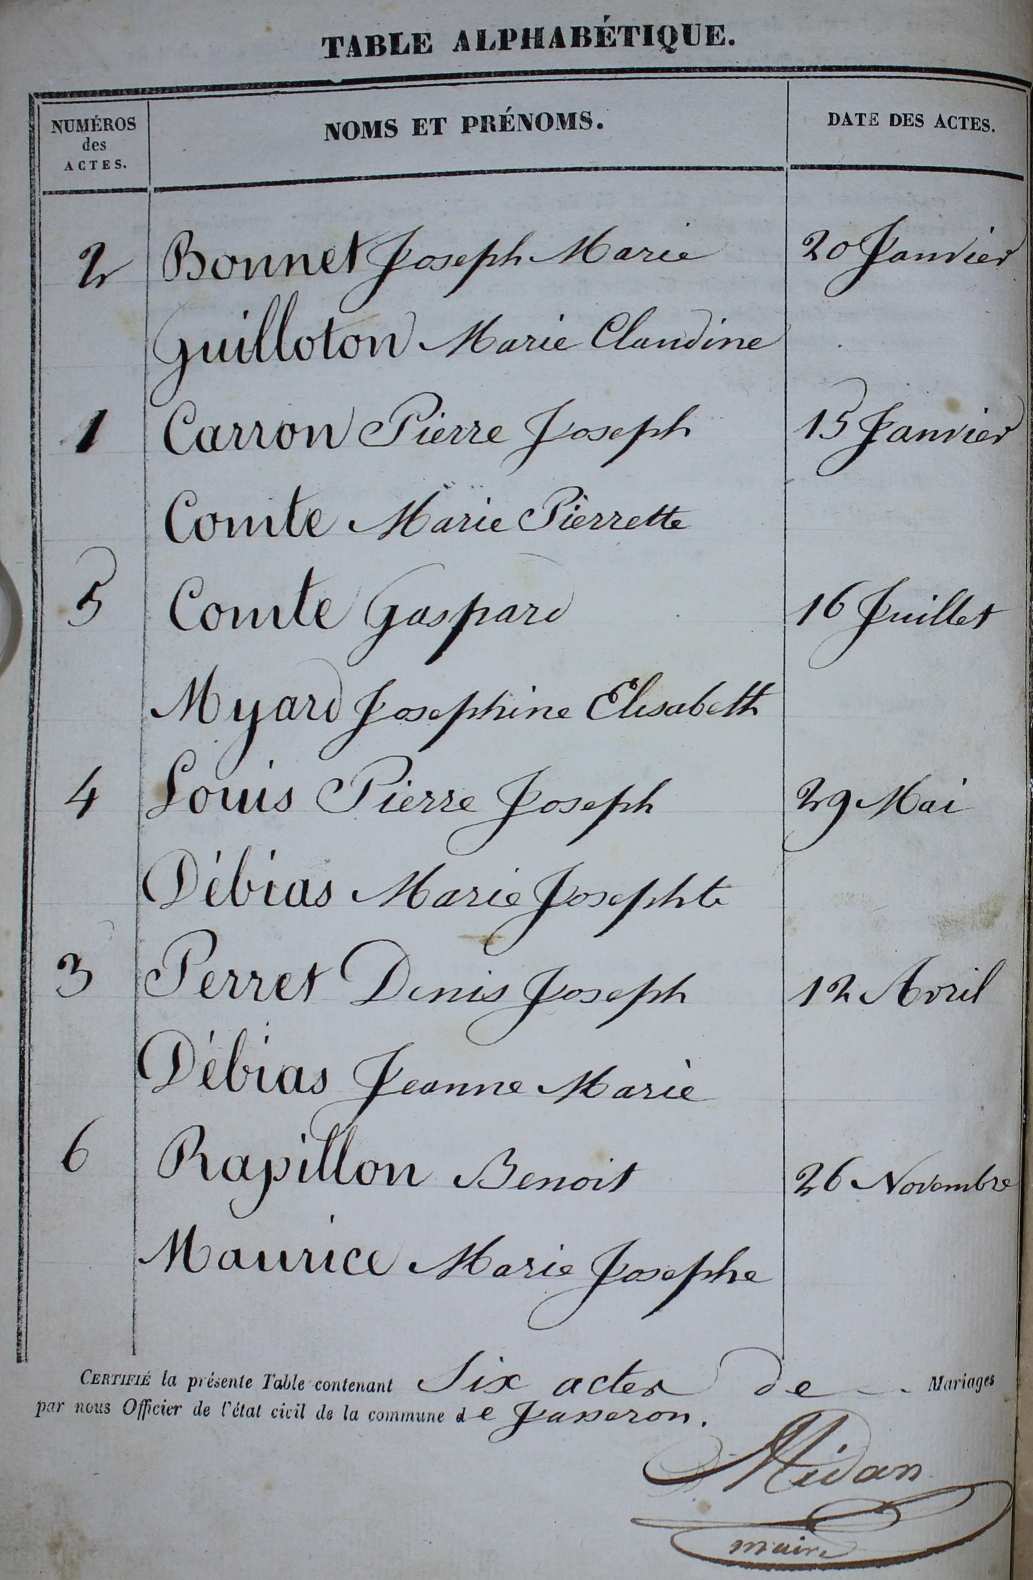 TABLE ALPHABÉTIQUE.
NUMÉROS des ACTES.
NOMS ET PRÉNOMS.
DATE DES ACTES.
2 Bonnet Joseph Marie 20 Janvier
Guilloton Marie Claudine
1 Carron Pierre Joseph 15 Janvier
Comte Marie Pierrette
5 Comte Gaspard 16 Juillet
Myard Josephine Elisabeth
4 Louis Pierre Joseph 29 Mai
Débias Marie Josephte
3 Perret Denis Joseph 12 Avril
Débias Jeanne Marie
6 Rapillon Benoit 26 Novembre
Maurice Marie Josephe
CERTIFIÉ la présente Table contenant Six actes de Mariages
par nous Officier de l'état civil de la commune de Jasseron.
Midan
maire